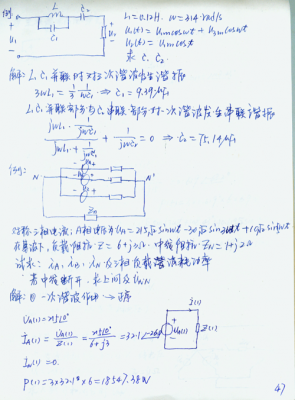 例
L
C₂
C₁
U₁
U₂
L=0.12H. ω=314 rad/s
U₁(t)=U₁mcosωt+U₃mcos3ωt
U₂(t)=U₁mcosωt
求 C₁ C₂
解: L, C₁并联时对3次谐波发生谐振
3ωL₁ = 1/(3ωC₁) ⇒ C₁=9.39μF
L, C₁并联部分与C₂串联部分对一次谐波发生串联谐振
(jωL₁·1/(jωC₁))/(jωL₁+1/(jωC₁)) + 1/(jωC₂) = 0 ⇒ C₂=75.14μF
例:
N
N'
Z_N
对称三相电源, A相电压为U_A=215√2sinωt-30√2sin3ωt+10√2sin5ωt
在基波下, 负载阻抗 Z=6+j3Ω. 中线阻抗 Z_N=1+j2Ω
试求: i_A, i_B, i_N 及三相负载吸收功率
若中线断开, 求上问及U_N'N
解: ① 一次谐波作用 → 正序
U_A(1)=215∠0°
I_A(1)=U_A(1)/Z(1)=215∠0°/(6+j3)=32.1∠-26.6°
I_N(1)=0.
P(1)=3×32.1²×6=18547.38W
i(1)
U_A(1)
Z(1)
47